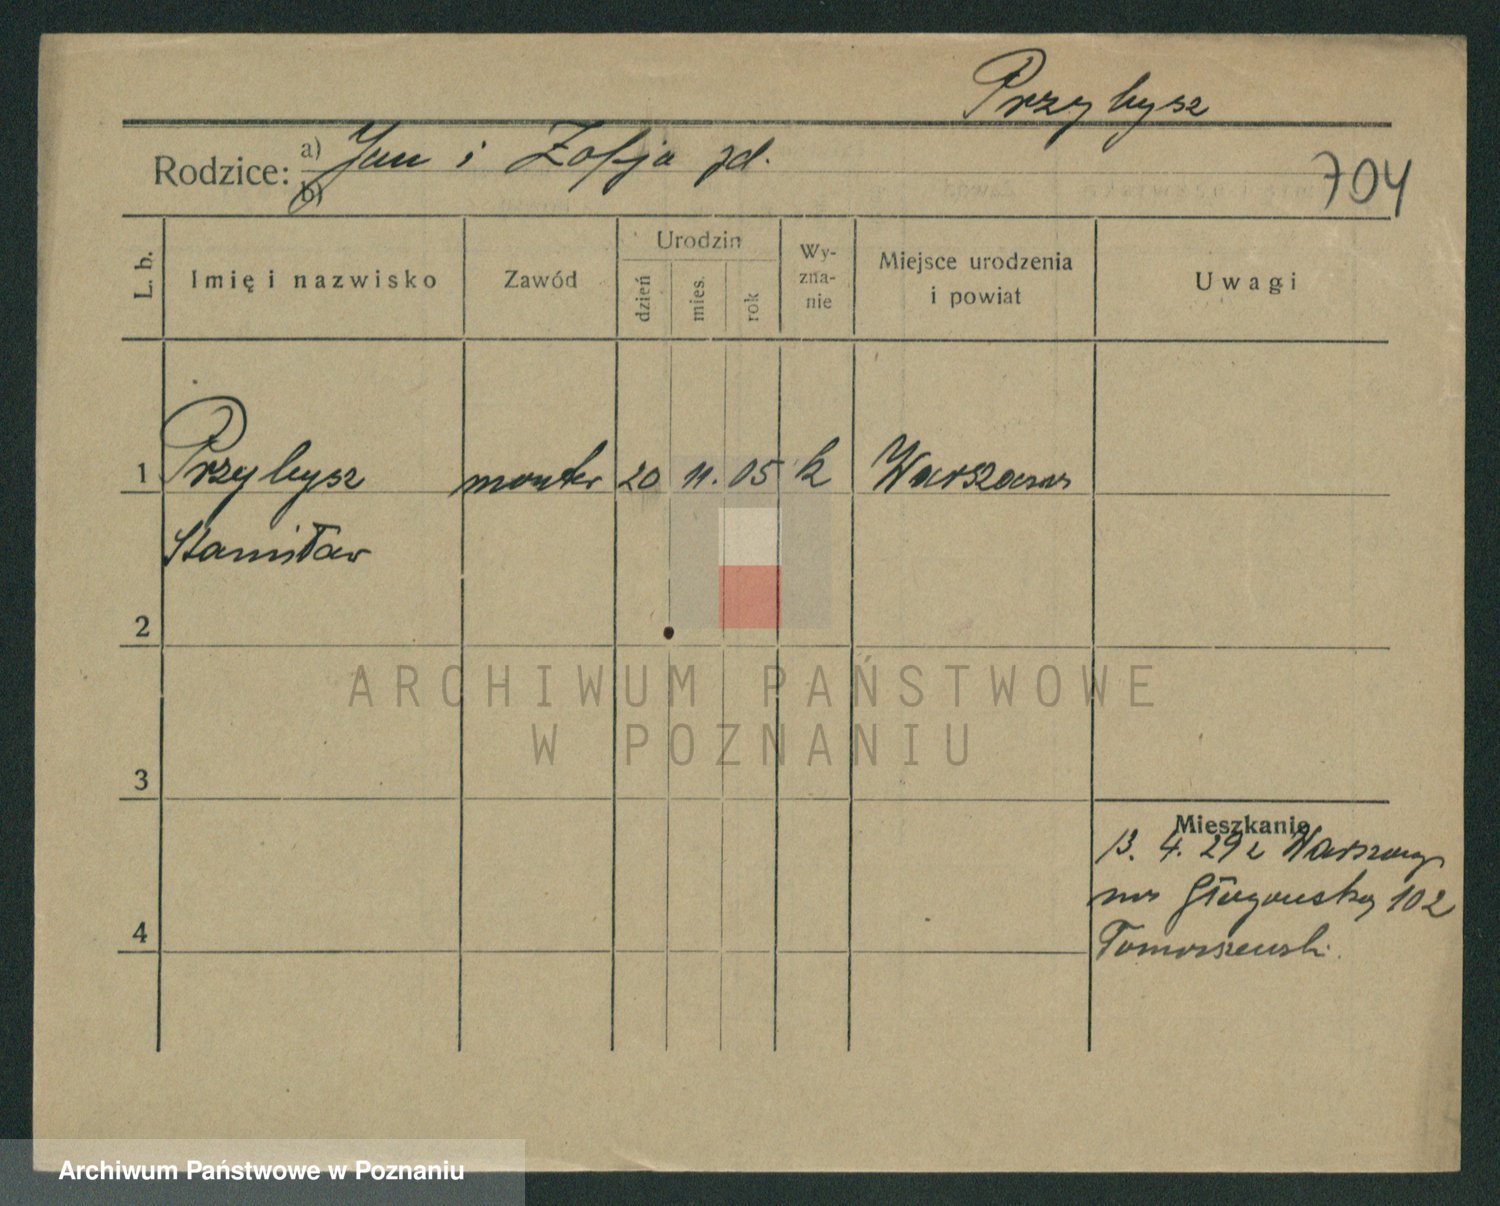 Przybysz
Rodzice: a) Jan i Zofja
b)
704
L. b.
Imię i nazwisko
Zawód
Urodzin
dzień
mies.
rok
Wy-
zna-
nie
Miejsce urodzenia
i powiat
Uwagi
1 Przybysz monter 20 11. 05 k Warszawa
Stanisław
2
3
4
Mieszkanie
13. 4. 29 z Warszawy
na Głogowską 102
Tomaszewski.
ARCHIWUM PAŃSTWOWE
W POZNANIU
Archiwum Państwowe w Poznaniu